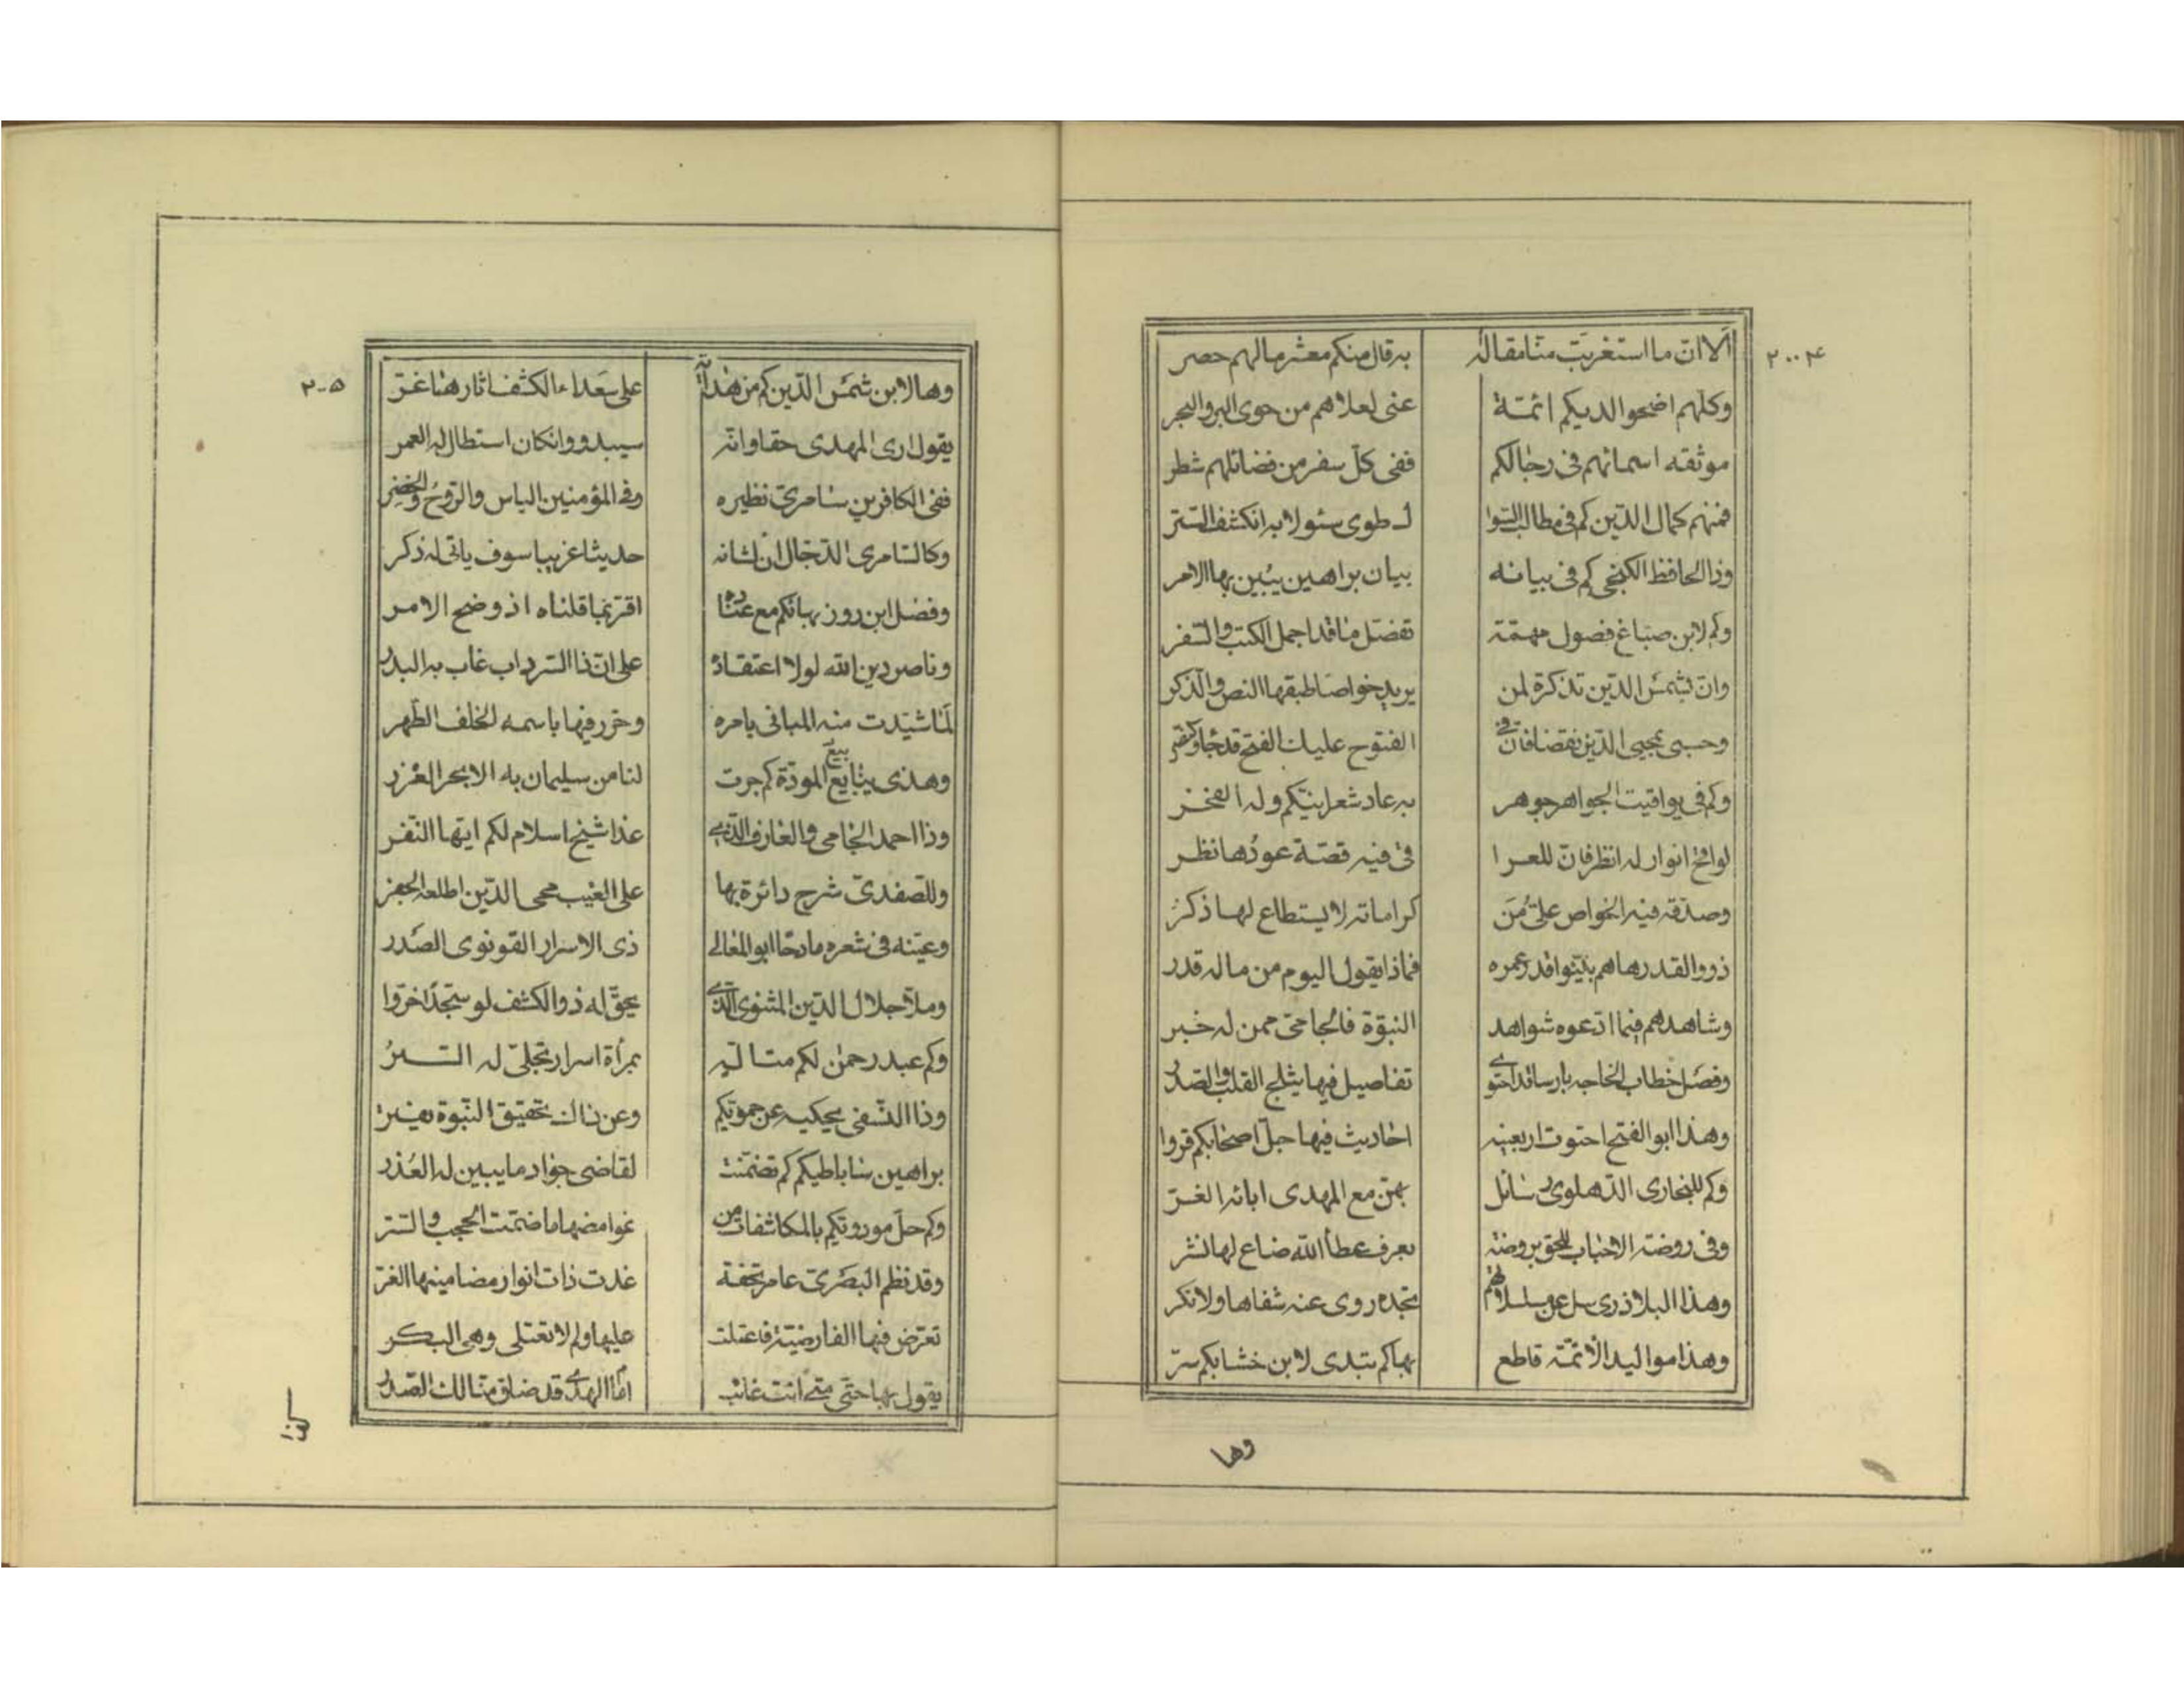 ٢٠٠٤
ألا ان ما استغربت منا مقاله به قال منكم معشر ما لهم حصر
وكلهم اضحوا لديكم ائمة عنى لعلاهم من حوى البر والبحر
موثقه اسمائهم فى رجالكم ففى كل سفر من فضائلهم شطر
فمنهم كمال الدين كم فى مطالب السوا ل طوى سئولا به انكشف الستر
وذا الحافظ الكنجى كم فى بيانه بيان براهين يبين بها الامر
وكم لابن صباغ فصول مهمة تفصل ما قد اجمل الكتب والسفر
وان لشمس الدين تذكرة لمن يريد خواصا طبقها النص والذكر
وحسبى بمحيى الدين نقضا فان فى الفتوح عليك الفتح قد جاء
وكم فى يواقيت الجواهر جوهر به عاد شعرانيكم وله الفخر
لواقح انوار له انظر فان للعرا قى فيه قصة عودها نظر
وصدقه فيه الخواص على من كراماته لا يستطاع لها ذكر
ذووا القدر هاهم بينوا قدر عمره فماذا يقول اليوم من ماله قدر
وشاهدهم فيما ادعوه شواهد النبوة فالجامى ممن له خبر
وفصل خطاب الخاجه بارسا قد احتوى تفاصيل فيها يثلج القلب والصدر
وهذا ابو الفتح احتوت اربعينه احاديث فيها جل اصحابكم قروا
وكم للبخارى الدهلوى رسائل بهن مع المهدى ابائه الغر
وفى روضة الاحباب للحق روضة بعرف عطاء الله ضاع لها نشر
وهذا البلاذرى سل عن مسلسلاتهم تجده روى عنه شفاها ولا نكر
وهذا مواليد الائمة قاطع بها كم تبدى لابن خشابكم سر
وها
٢٠٥
وها لابن شمس الدين كم من هداية على سعداء الكشف اثارها غر
يقول ارى المهدى حقا وانه سيبدو وانكان استطال له العمر
ففى الكافرين سامرى نظيره وفى المؤمنين الياس والروح والخضر
وكالسامرى الدجال ان لشانه حديثا غريبا سوف ياتى له ذكر
وفضل ابن روزبهانكم مع عناده اقر بما قلناه اذ وضح الامر
وناصر دين الله لولا اعتقاده على ان ذا السرداب غاب به البدر
لما شيدت منه المبانى بامره وحرر فيها باسمه الخلف الطهر
وهذى ينابيع المودة كم جرت لنا من سليمان به الابحر الغزر
وذا احمد الجامى والعارف الذى غدا شيخ اسلام لكم ايها النفر
وللصفدى شرح دائرة بها على الغيب محى الدين اطلعه الجفر
وعينه فى شعره مادحا ابو المعالى ذى الاسرار القونوى الصدر
وملا جلال الدين المثنوى الذى يحق له ذو الكشف لو سجدا خروا
وكم عبد رحمن لكم متاله بمرأة اسرار تجلى له السر
وذا النسفى يحكيه عن حمويكم وعن ذاك تحقيق النبوة يفتر
براهين ساباطيكم كم تضمنت لقاضى جواد ما يبين له العذر
وكم حل موروديكم بالمكاشفات من غوامضها ما ضمت الحجب والستر
وقد نظم البصرى عامر تحفة غدت ذات انوار مضامينها الغر
تعرض فيها الفارضية فاعتلت عليها ولم لا تعتلى وهى البكر
يقول بها حتى متى انت غائب امام الهدى قد ضاق منالك الصدر